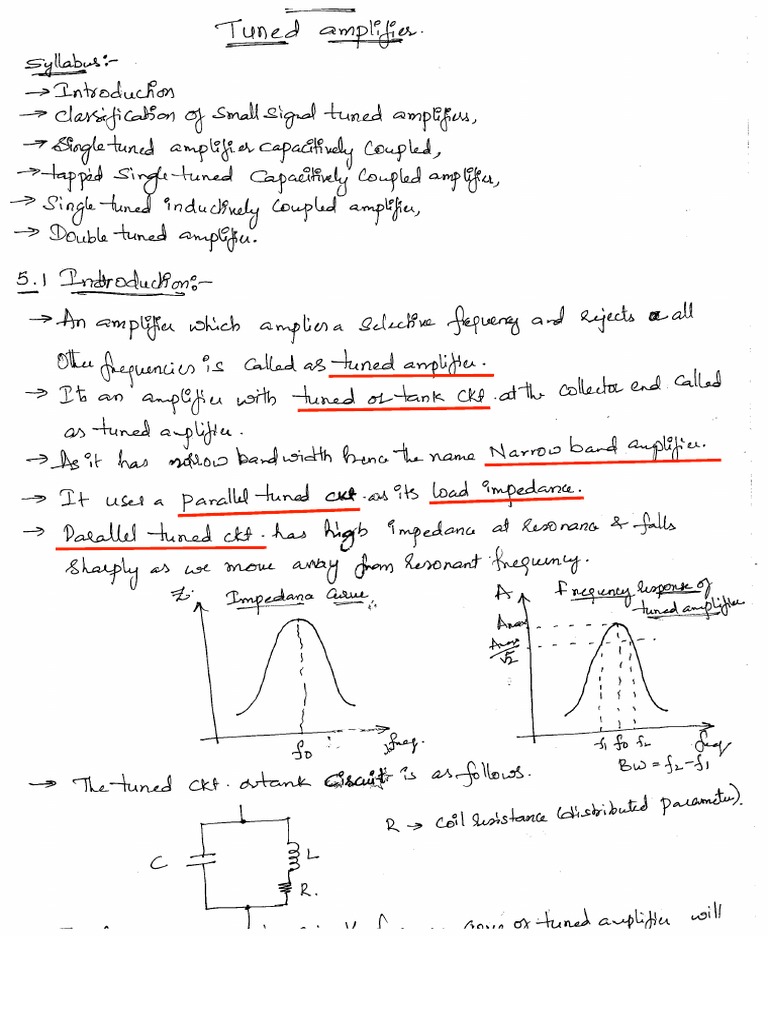 Tuned amplifier.
Syllabus:-
→ Introduction
→ Classification of Small Signal tuned amplifiers,
→ Single tuned amplifier capacitively coupled,
→ tapped Single-tuned Capacitively Coupled amplifier,
→ Single-tuned inductively coupled amplifier,
→ Double tuned amplifier.
5.1 Introduction:-
→ An amplifier which amplies a selective frequency and rejects all
other frequencies is called as tuned amplifier.
→ Its an amplifier with tuned or tank ckt. at the collector end called
as tuned amplifier.
→ As it has narrow bandwidth hence the name Narrow band amplifier.
→ It uses a parallel tuned ckt as its load impedance.
→ Parallel tuned ckt. has high impedance at resonance & falls
sharply as we move away from resonant frequency.
Z Impedance Curve
f0 freq.
A Frequency response of
tuned amplifier
Amax
Amax/√2
f1 f0 f2 freq
BW = f2-f1
→ The tuned ckt. or tank circuit is as follows.
R → coil resistance (distributed parameter).
C
L
R.
or tuned amplifier will